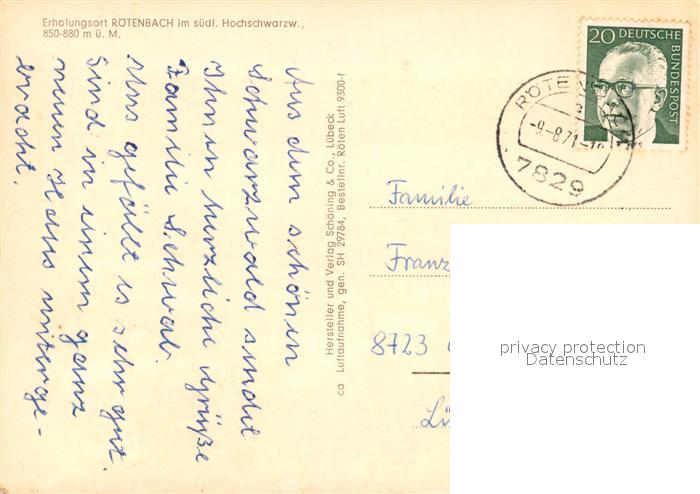 Erholungsort RÖTENBACH im südl. Hochschwarzw.,
850-880 m ü. M.
Aus dem schönen
Schwarzwald sendet
Ihnen herzliche Grüße
Familie Schwab.
Uns gefällt es sehr gut.
Sind in einem ganz
neuen Haus unterge-
bracht.
Hersteller und Verlag Schöning & Co., Lübeck
ca Luftaufnahme, gen. SH 29784, Bestellnr. Röten Luft 9300-f
20 DEUTSCHE
BUNDESPOST
RÖTENB
a
-9.-8.71-
7829
Familie
Franz
8723
privacy protection
Datenschutz